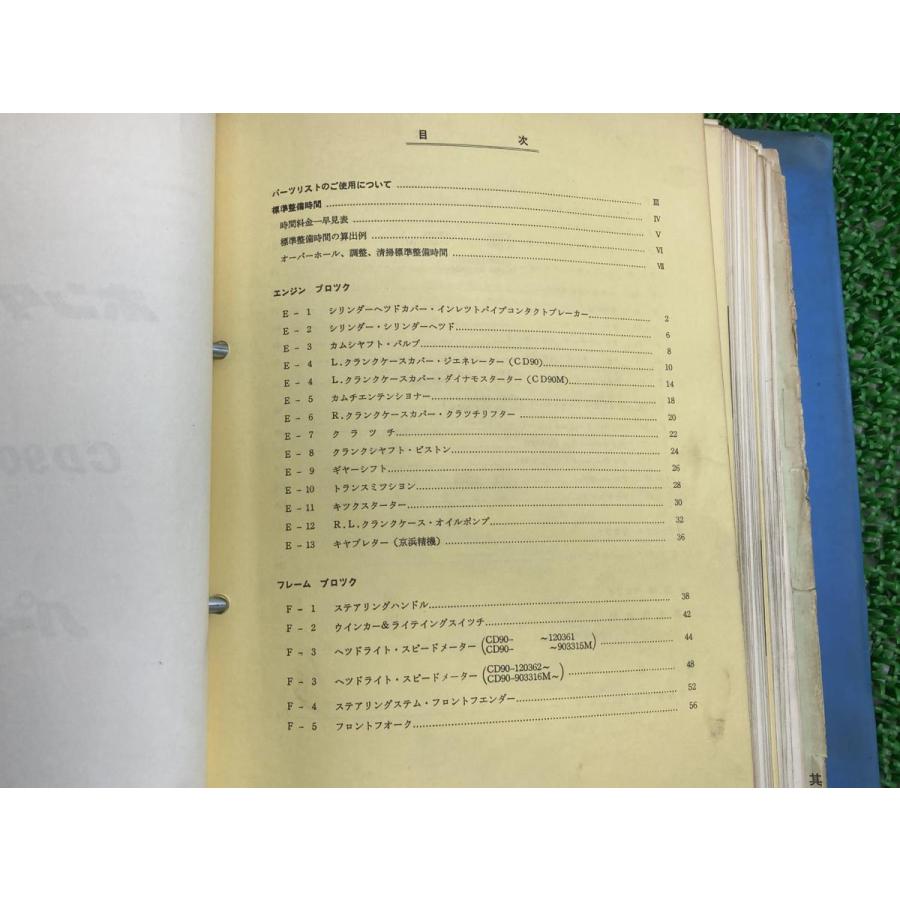 目 次
パーツリストのご使用について Ⅲ
標準整備時間 Ⅳ
時間料金一早見表 Ⅴ
標準整備時間の算出例 Ⅵ
オーバーホール、調整、清掃標準整備時間 Ⅶ
エンジン ブロツク
E － 1 シリンダーヘツドカバー・インレツトパイプコンタクトブレーカー 2
E － 2 シリンダー・シリンダーヘツド 6
E － 3 カムシヤフト・バルブ 8
E － 4 L.クランクケースカバー・ジエネレーター（CD90） 10
E － 4 L.クランクケースカバー・ダイナモスターター（CD90M） 14
E － 5 カムチエンテンシヨナー 18
E － 6 R.クランクケースカバー・クラツチリフター 20
E － 7 ク ラ ツ チ 22
E － 8 クランクシヤフト・ピストン 24
E － 9 ギヤーシフト 26
E －10 トランスミツシヨン 28
E －11 キツクスターター 30
E －12 R.L.クランクケース・オイルポンプ 32
E －13 キヤブレター（京浜精機） 36
フレーム ブロツク
F － 1 ステアリングハンドル 38
F － 2 ウインカー＆ライテイングスイツチ 42
F － 3 ヘツドライト・スピードメーター（CD90－ ～120361 CD90－ ～903315M） 44
F － 3 ヘツドライト・スピードメーター（CD90－120362～ CD90－903316M～） 48
F － 4 ステアリングステム・フロントフエンダー 52
F － 5 フロントフオーク 56
其